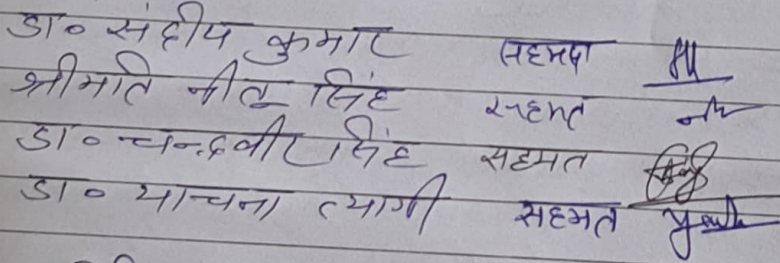 डा० संदीप कुमार सहमत
श्रीमति नीतू सिंह सहमत
डा० चन्द्रवीर सिंह सहमत
डा० याचना त्यागी सहमत